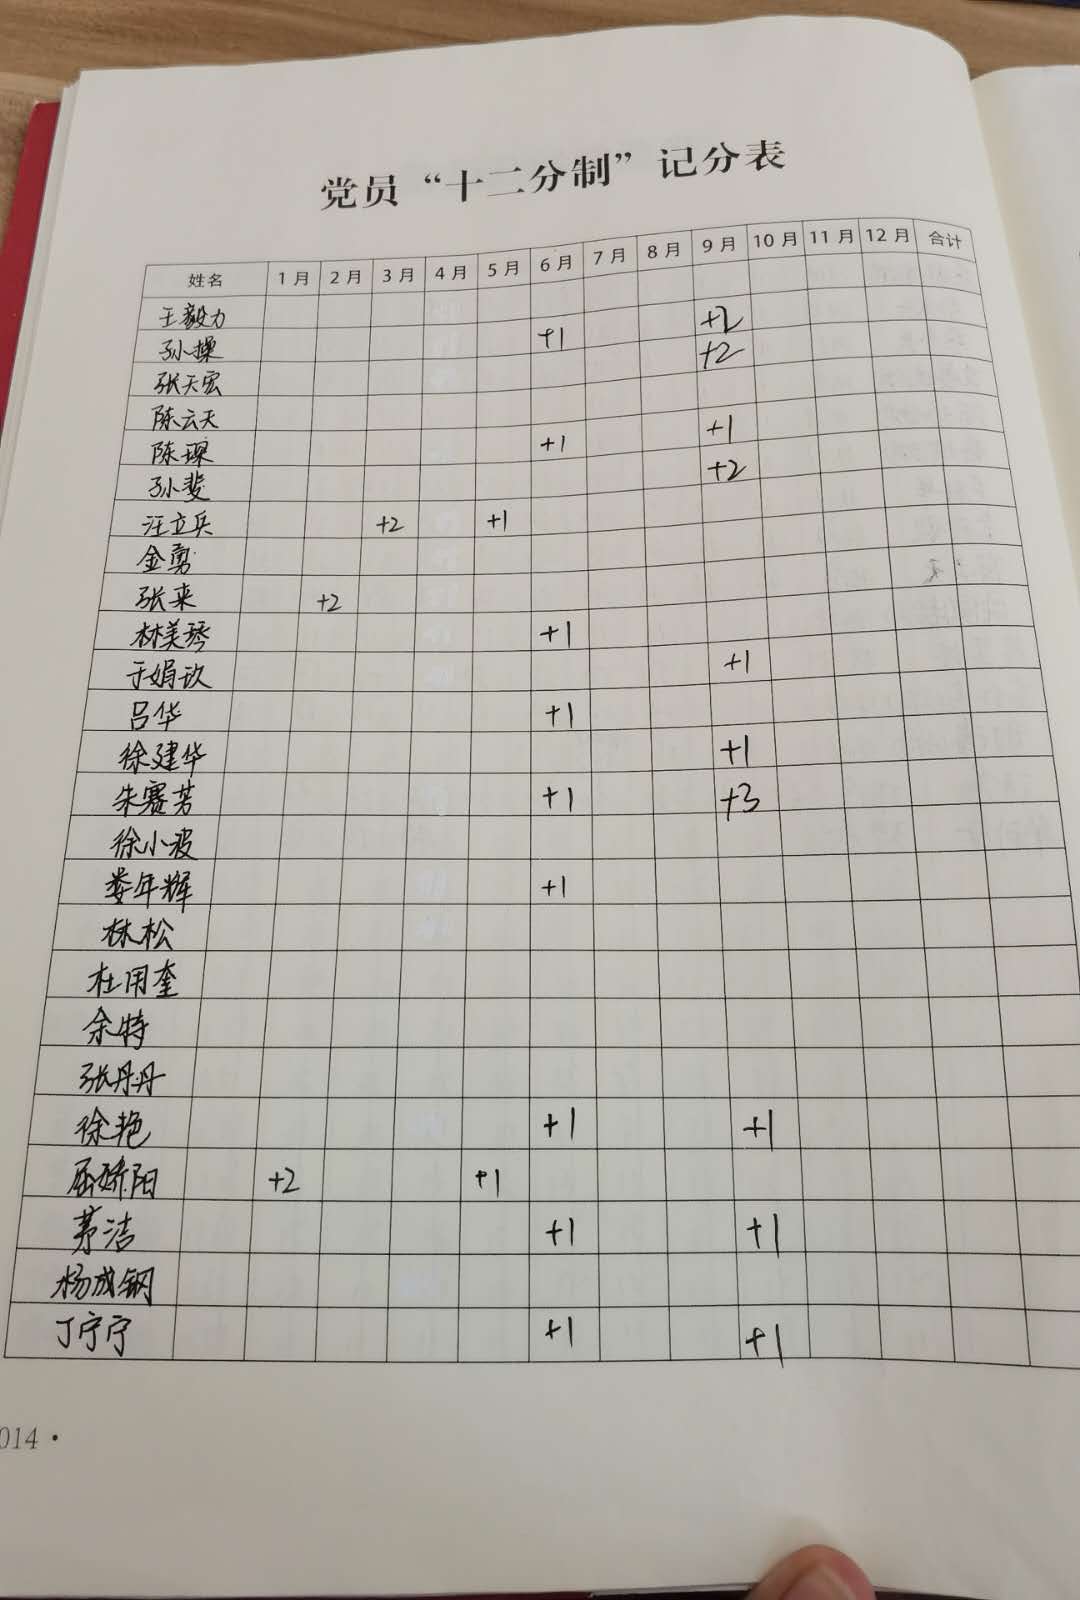 党员“十二分制”记分表
姓名 1月 2月 3月 4月 5月 6月 7月 8月 9月 10月 11月 12月 合计
王毅力
孙操 +1 +2
张天宏 +2
陈云天
陈琛 +1 +1
孙斐 +2
汪立兵 +2 +1
金勇
张来 +2
林美琴 +1
于娟玖 +1
吕华 +1
徐建华 +1
朱赛芳 +1 +3
徐小波
娄年辉 +1
林松
杜用奎
余特
张丹丹
徐艳 +1 +1
屈娇阳 +2 +1
茅洁 +1 +1
杨成钢
丁宁宁 +1 +1
014 ·